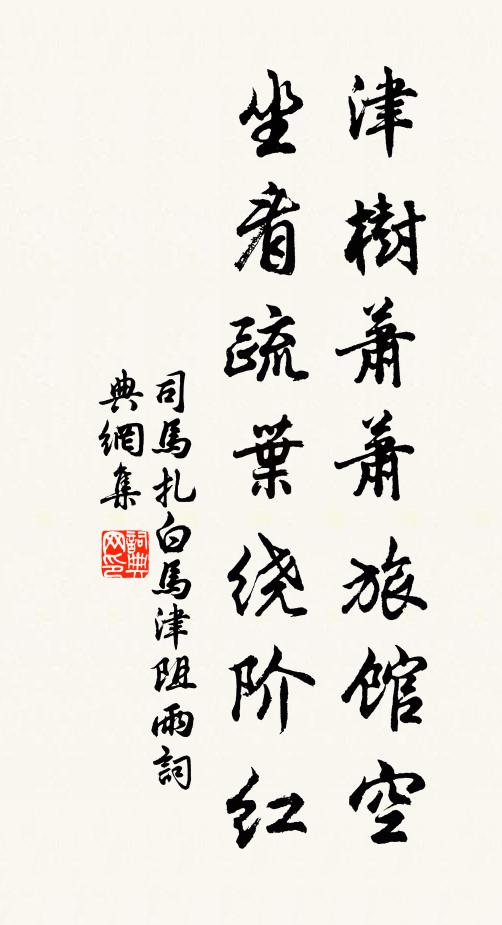 津樹蕭蕭旅館空
坐看疏葉绕阶红
司馬扎白馬津阻雨詞
典網集
詞典
网印